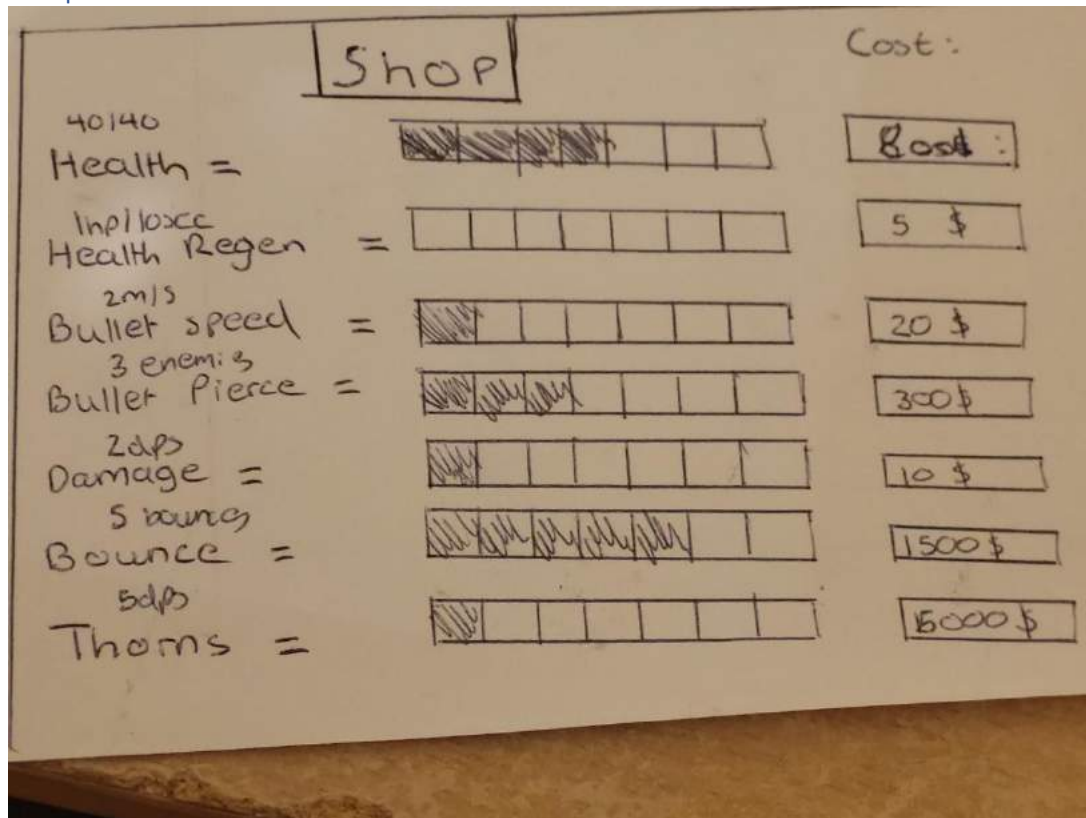 Shop
Cost:
40/40
Health =
1hp/10sec
Health Regen = 5 $
2m/s
Bullet speed = 20 $
3 enemis
Bullet Pierce = 300$
2dps
Damage = 10 $
5 bounces
Bounce = 1500$
5dps
Thorns = 15000$